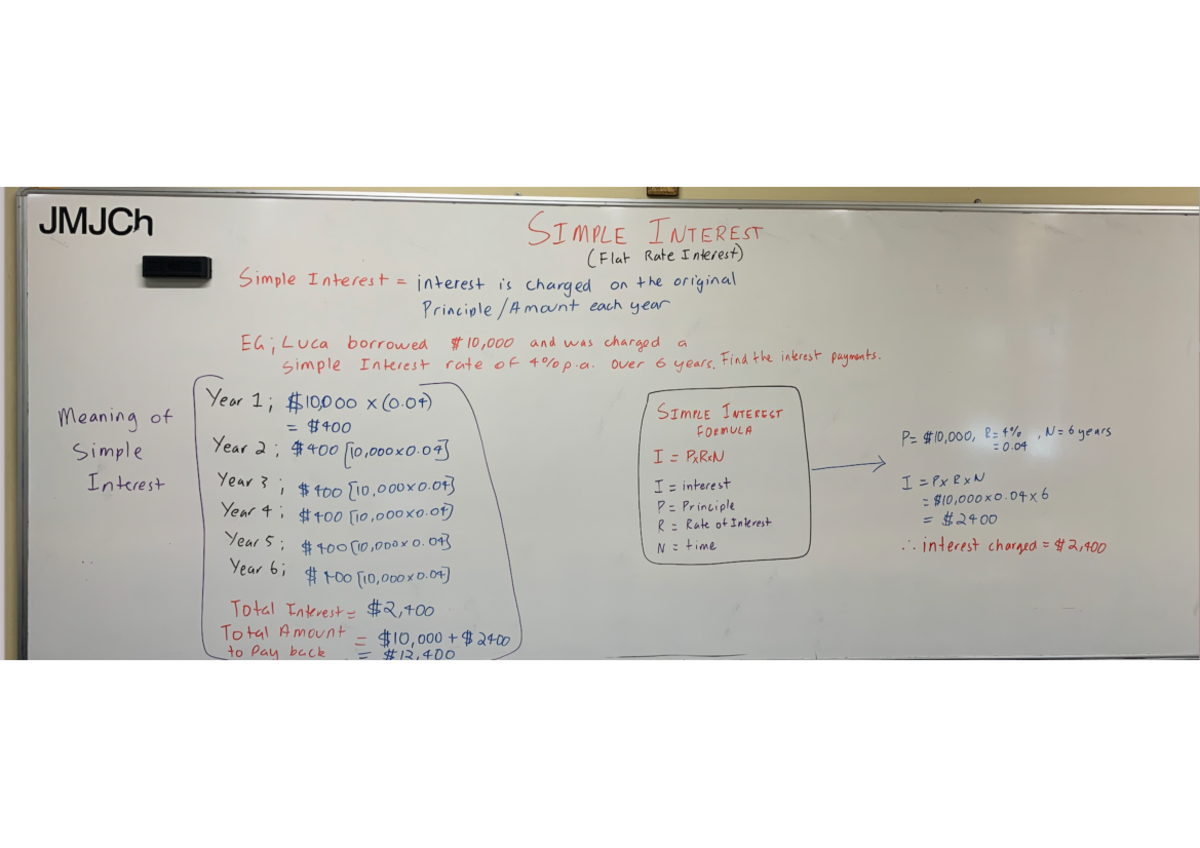 JMJCh
SIMPLE INTEREST
(Flat Rate Interest)
Simple Interest = interest is charged on the original
Principle/Amount each year
EG; Luca borrowed $10,000 and was charged a
simple Interest rate of 4% p.a. over 6 years. Find the interest payments.
Meaning of
Simple
Interest
Year 1; $10,000 x (0.04)
= $400
Year 2; $400 [10,000x0.04]
Year 3; $400 [10,000x0.04]
Year 4; $400 [10,000x0.04]
Year 5; $400 [10,000x0.04]
Year 6; $400 [10,000x0.04]
Total Interest = $2,400
Total Amount = $10,000 + $2400
to Pay back = $12,400
SIMPLE INTEREST
FORMULA
I = PxRxN
I = interest
P = Principle
R = Rate of Interest
N = time
P= $10,000, R= 4%, N= 6 years
= 0.04
I = P x R x N
= $10,000 x 0.04 x 6
= $2400
∴ interest charged = $2,400